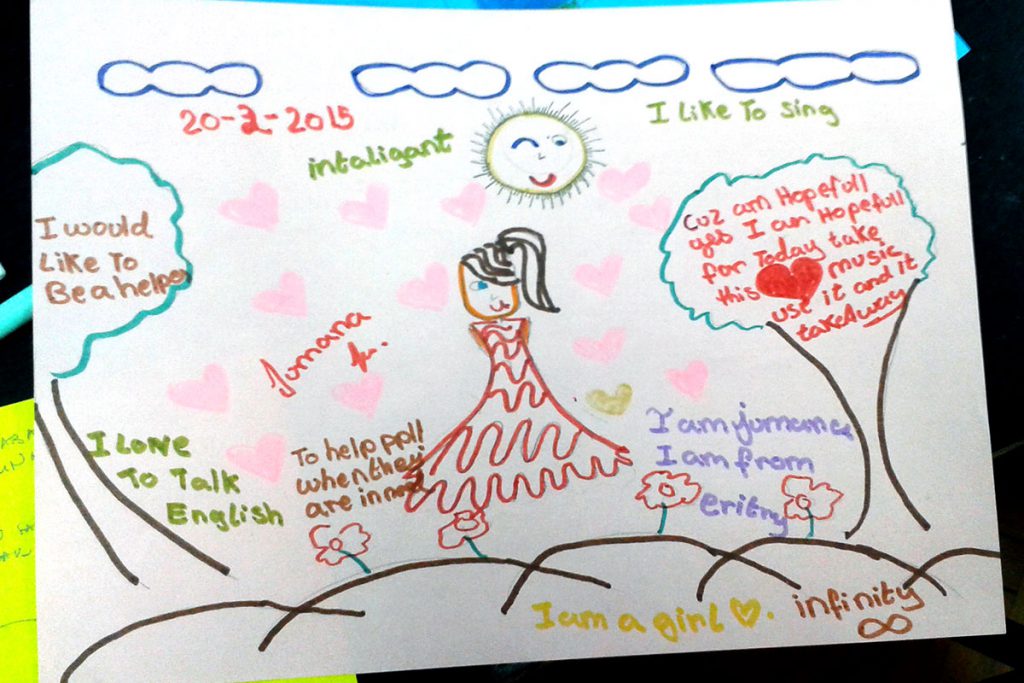 20-2-2015
intaligant
I Like To sing
I would
Like To
Be a helper
Cuz am Hopefull
yes I am Hopefull
for Today take
this music
use it and it
take Away
Jumana
I Love
To Talk
English
To help ppl!
when they
are in need
I am jumana
I am from
eritry
I am a girl
infinity
∞